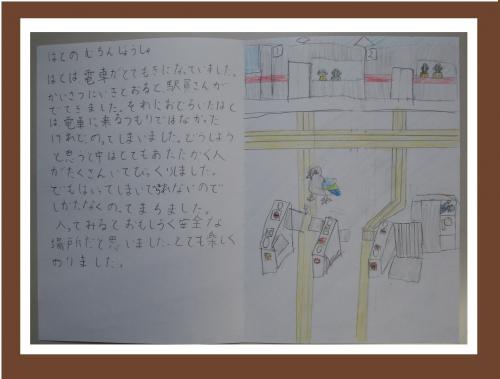 はとの むちんじょうしゃ
はとは電車がとてもきになっていました。
かいさつにいきとおると、駅員さんが
でてきました。それにおどろいたはと
は電車に乗るつもりではなかった
けれどのってしまいました。どうしよう
と思うと中はとてもあたたかく人
がたくさんいてびっくりしました。
でもはいってしまいでれないので
しかたなくのってまちました。
入ってみるとおもしろく安全な
場所だと思いました。とても楽しく
のりました。
1
2